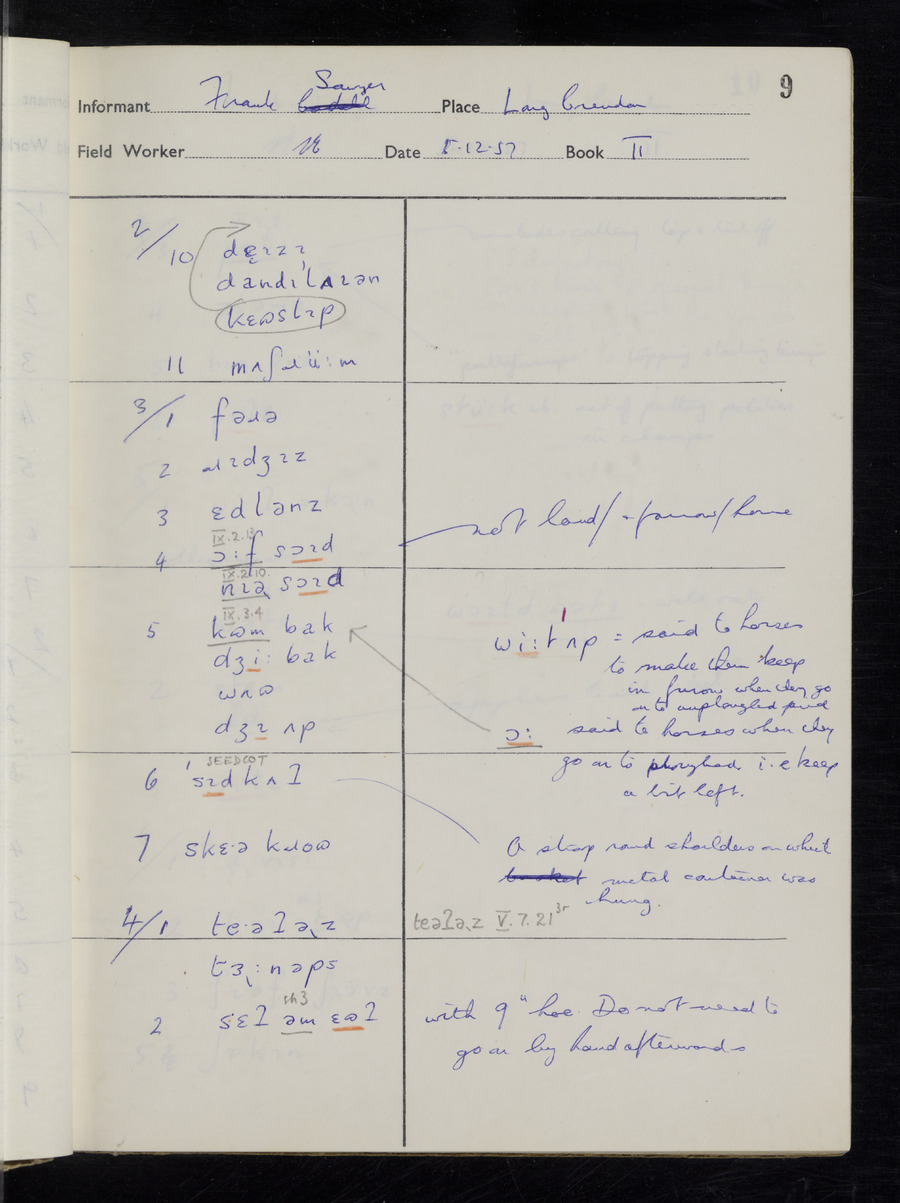 9
Informant Frank Sawyer Place Long Crendon
Field Worker Date 5·12·57 Book II
2/10 dɛɪzɪ
dandɪˈlʌɪən
kɛɷslɪp
11 mʌʃɹüːm
3/1 fəɹə
2 ɹɪdʒɪz
3 ɛdlənz
not land/-furrow/horse
IX.2.13
4 ɔːf sɔɪd
IX.2.10
nɪə sɔɪd
IX.3.4
5 kɷm bak
dʒiː bak
wʌɷ
dʒɪ ʌp
wiːt ˈʌp = said to horses
to make them keep
in furrow when they go
on to unploughed
ɔː said to horses when they
go on to ploughed. i.e keep
a bit left.
SEEDCOT
6 ˈsɪdkʌʔ
7 skɛ·ə kɹoɷ
A strap round shoulders on which
metal container was
hung.
4/1 te·əʔəz
teəʔəz V.7.21
tɜːnəps
2 sɛʔ əm ɛɷʔ
with 9" hoe. Do not need to
go on by hand afterwards